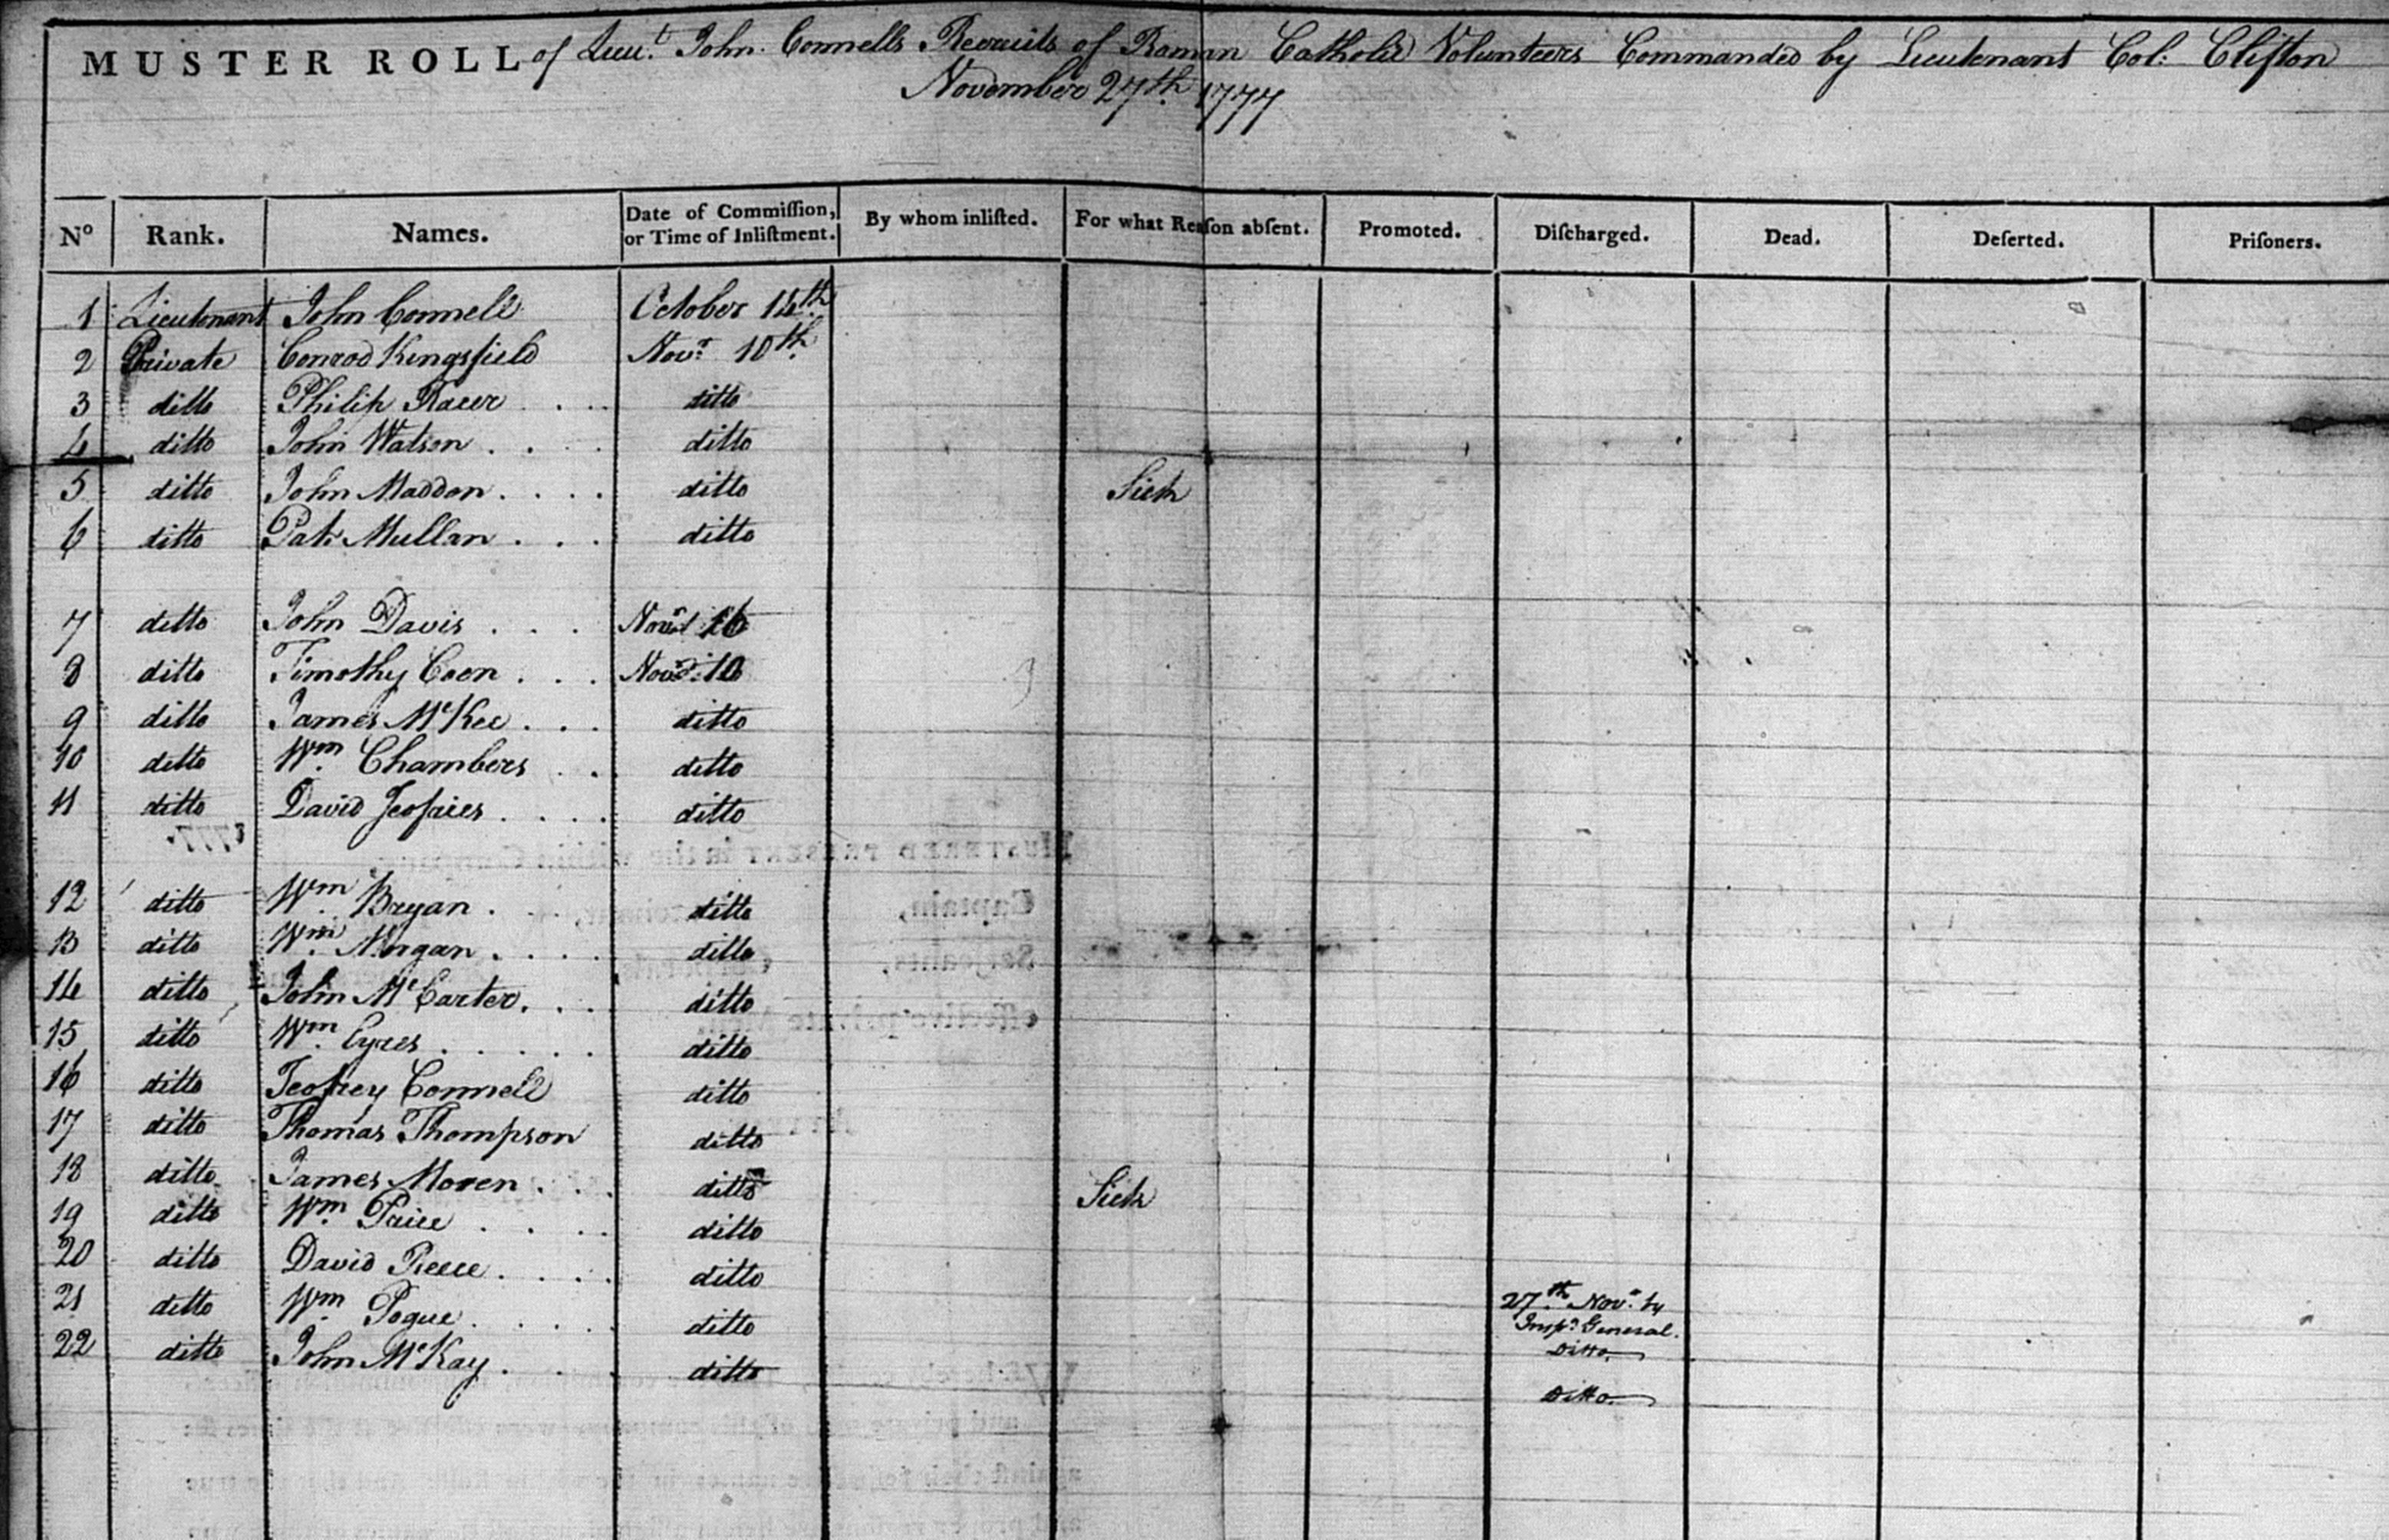 MUSTER ROLL of Lieut. John Connells Recruits of Roman Catholic Volunteers Commanded by Lieutenant Col: Clifton
November 27th 1777
No Rank. Names. Date of Commiſſion, or Time of Inliſtment. By whom inliſted. For what Reaſon abſent. Promoted. Diſcharged. Dead. Deſerted. Priſoners.
1 Lieutenant John Connell October 14th
2 Private Conrod Kingsfield Novr 10th
3 ditto Philip Racer . . . ditto
4 ditto John Watson . . . ditto
5 ditto John Maddon . . . . ditto Sick
6 ditto Pat. Mullan . . . ditto
7 ditto John Davis . . . Novr 16
8 ditto Timothy Coen . . . Novr 10
9 ditto James McKee . . . ditto
10 ditto Wm Chambers . . ditto
11 ditto David Jeofries . . . . ditto
12 ditto Wm Bryan . . . ditto
13 ditto Wm Morgan . . . . ditto
14 ditto John McCarter . . . ditto
15 ditto Wm Eyres . . . . . ditto
16 ditto Jeofrey Connell ditto
17 ditto Thomas Thompson ditto
18 ditto James Moren . . . ditto Sick
19 ditto Wm Price . . . . ditto
20 ditto David Reece . . . . ditto 27th Novr by Inspr General.
21 ditto Wm Pogue . . . . ditto Ditto
22 ditto John McKay . . . . ditto Ditto